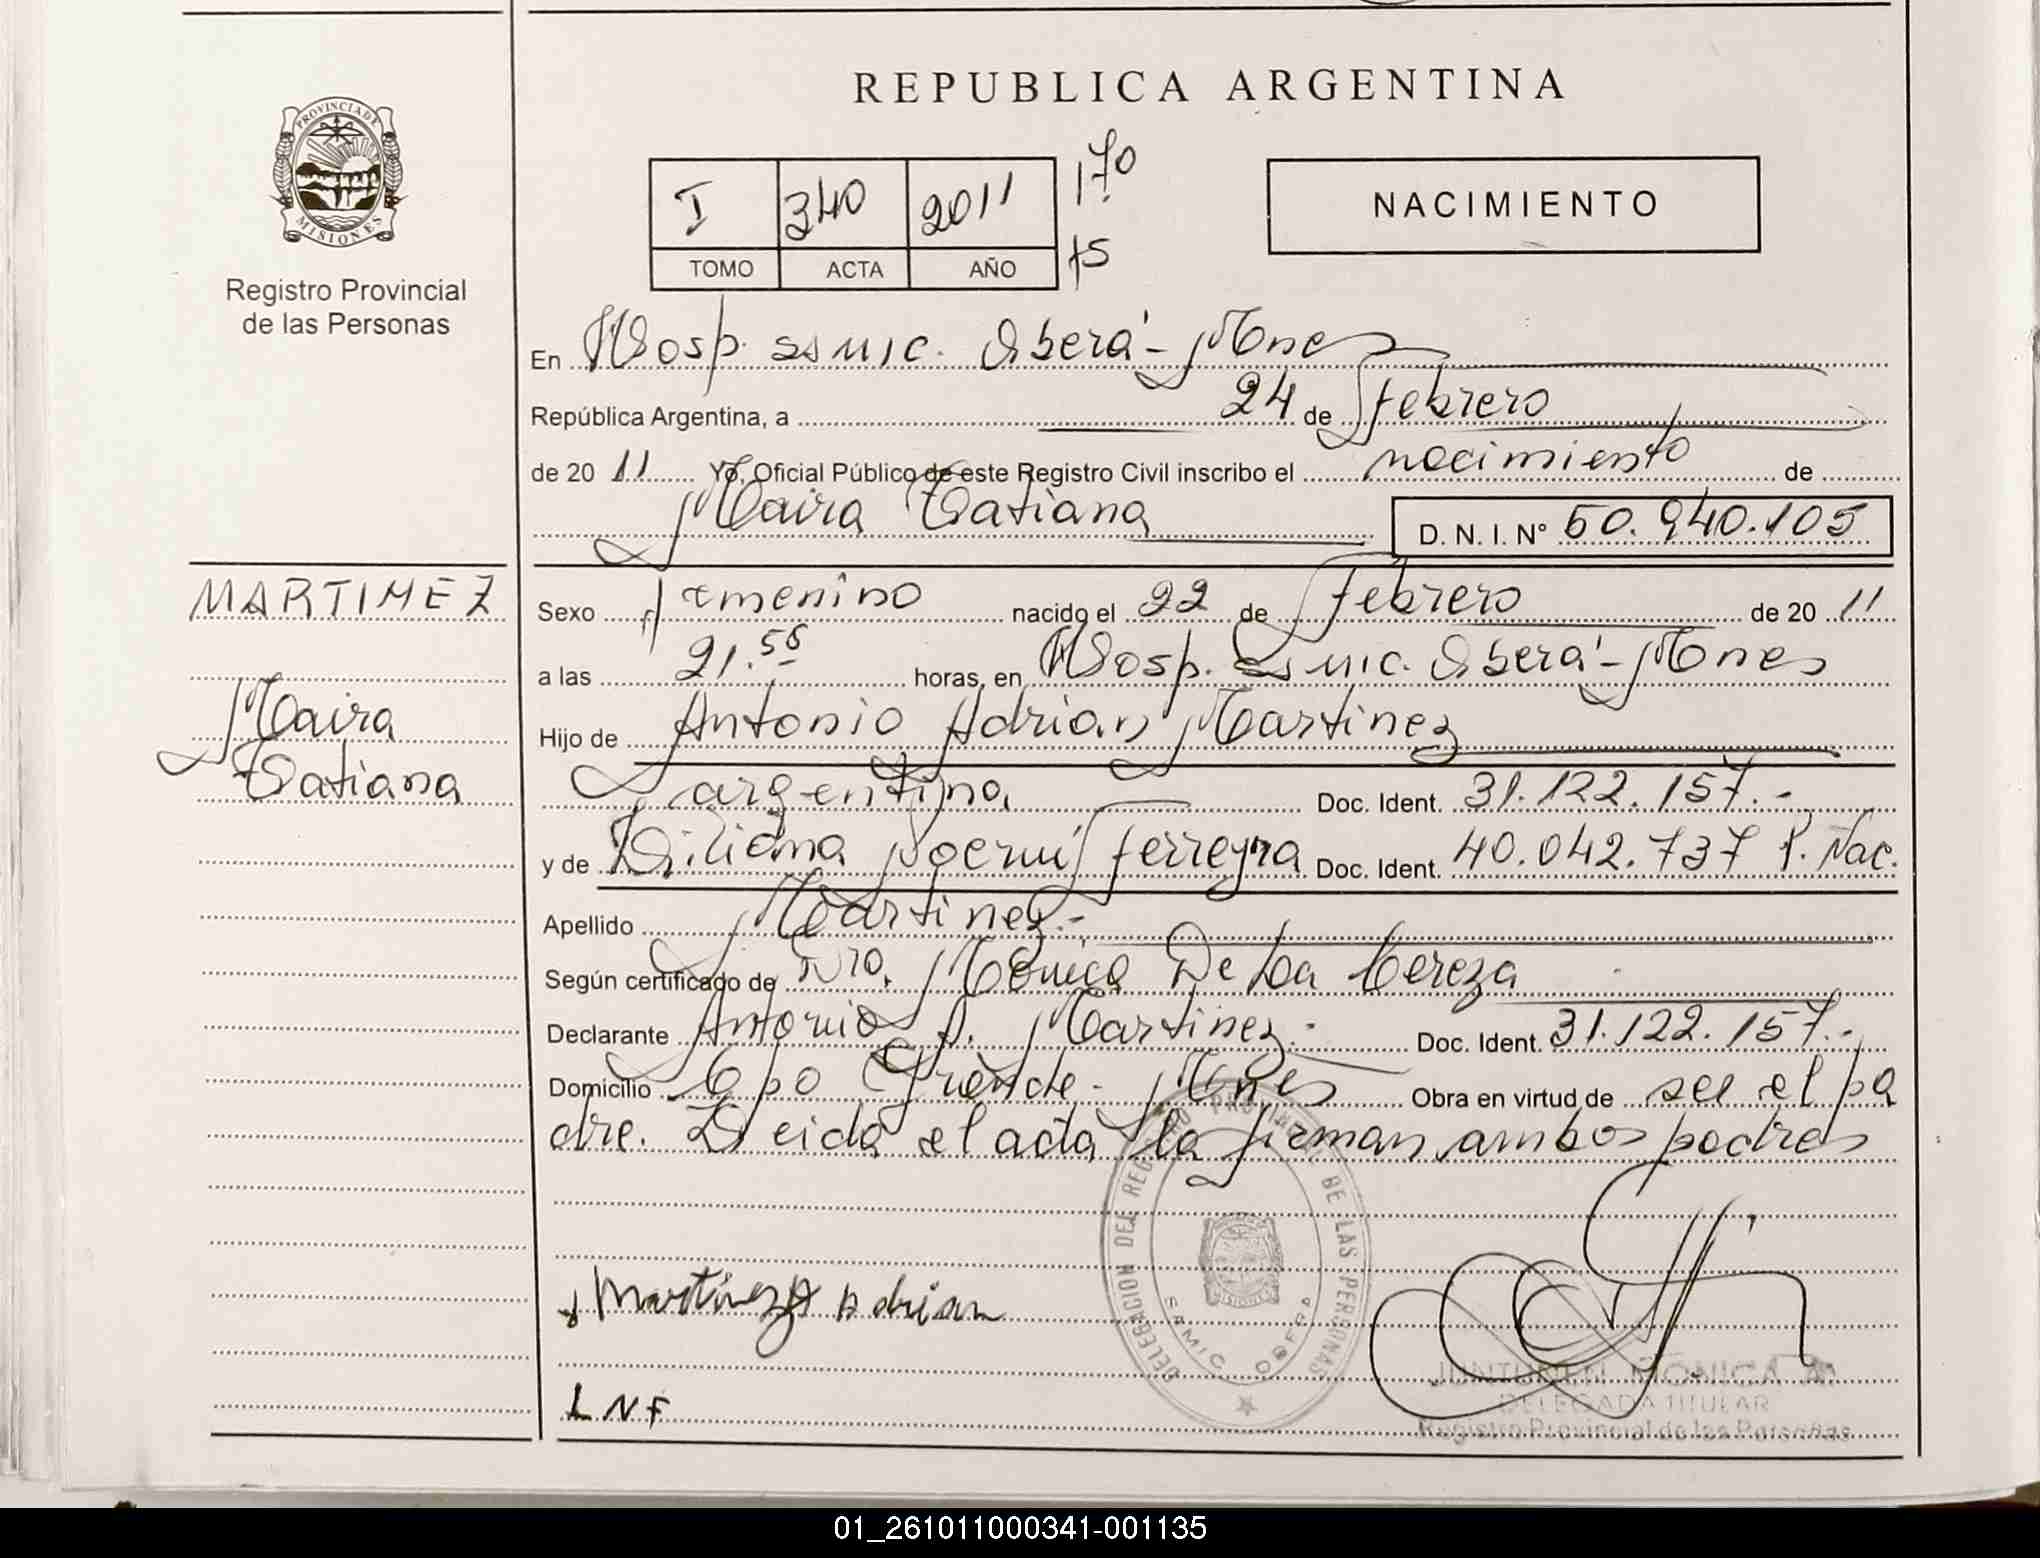 REPUBLICA ARGENTINA
PROVINCIA DE MISIONES
Registro Provincial
de las Personas
I 340 2011 170
TOMO ACTA AÑO 15
NACIMIENTO
En Hosp. SAMIC. Oberá - Mnes
República Argentina, a 24 de febrero
de 20 11 Yo, Oficial Público de este Registro Civil inscribo el nacimiento de
Maira Tatiana D. N. I. Nº 50.940.105
MARTINEZ
Maira
Tatiana
Sexo femenino nacido el 22 de febrero de 20 11
a las 21.55 horas, en Hosp. SAMIC. Oberá - Mnes
Hijo de Antonio Adrian Martinez
argentina Doc. Ident. 31.122.157.-
y de Liliana Noemí Ferreyra Doc. Ident. 40.042.737 P. Nac.
Apellido Martinez.-
Según certificado de Dra. Mónica De La Cereza
Declarante Antonio A. Martinez.- Doc. Ident. 31.122.157.-
Domicilio Cpo Grande - Mnes Obra en virtud de ser el pa
dre. Leida el acta la firman ambos padres
Martínez Adrian
L N F
DELEGACION DEL REGISTRO PROVINCIAL DE LAS PERSONAS
SAMIC OBERA
MISIONES
JUNTUNEN MONICA
DELEGADA TITULAR
Registro Provincial de las Personas
01_261011000341-001135